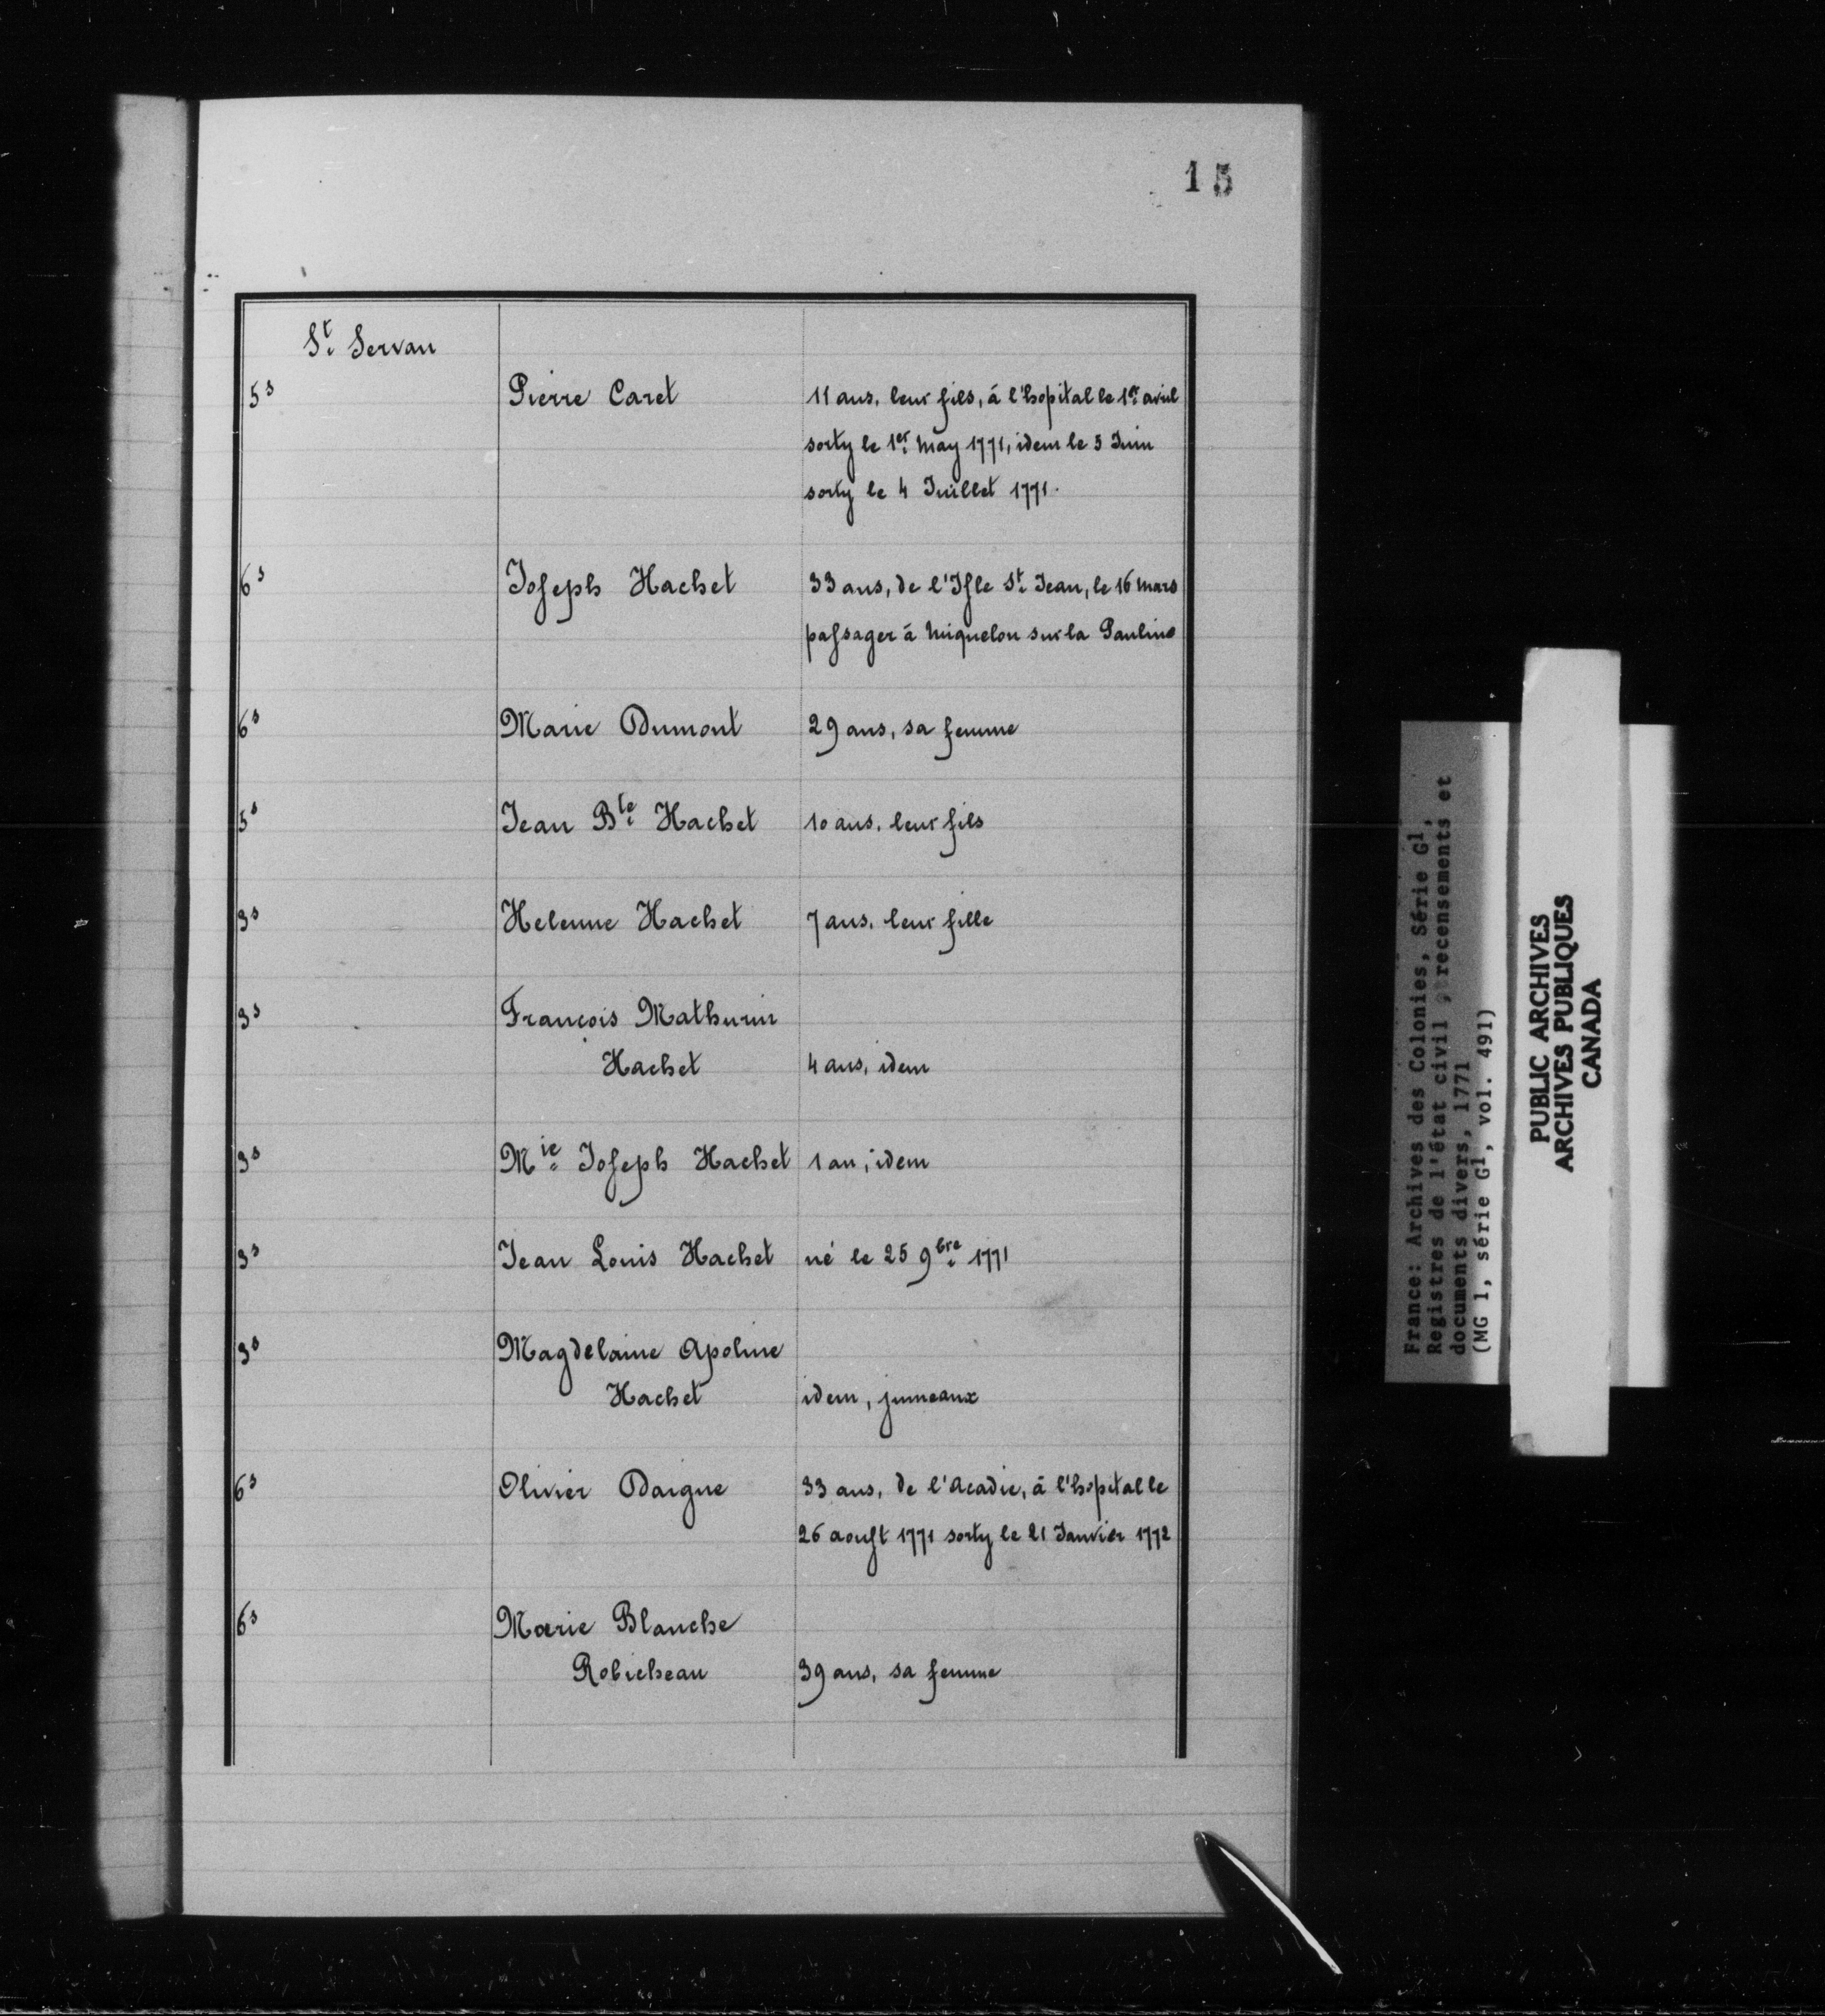 15
St. Servan
5s Pierre Caret 11 ans, leur fils, à l'hopital le 1er avril
sorty le 1er May 1771, idem le 5 Juin
sorty le 4 Juillet 1771.
6s Joseph Hachet 33 ans, de l'Isle St. Jean, le 16 mars
passager à Miquelon sur la Pauline
6s Marie Dumont 29 ans, sa femme
5s Jean Bte. Hachet 10 ans, leur fils
3s Helenne Hachet 7 ans, leur fille
3s François Mathurin
Hachet 4 ans, idem
3s Mie. Joseph Hachet 1 an, idem
3s Jean Louis Hachet né le 25 9bre. 1771
3s Magdelaine Apoline
Hachet idem, jumeaux
6s Olivier Daigue 33 ans, de l'Acadie, à l'hopital le
26 aoust 1771 sorty le 21 Janvier 1772
6s Marie Blanche
Robicheau 39 ans, sa femme
France: Archives des Colonies, Série G1,
Registres de l'état civil, recensements et
documents divers, 1771
(MG 1, série G1, vol. 491)
PUBLIC ARCHIVES
ARCHIVES PUBLIQUES
CANADA